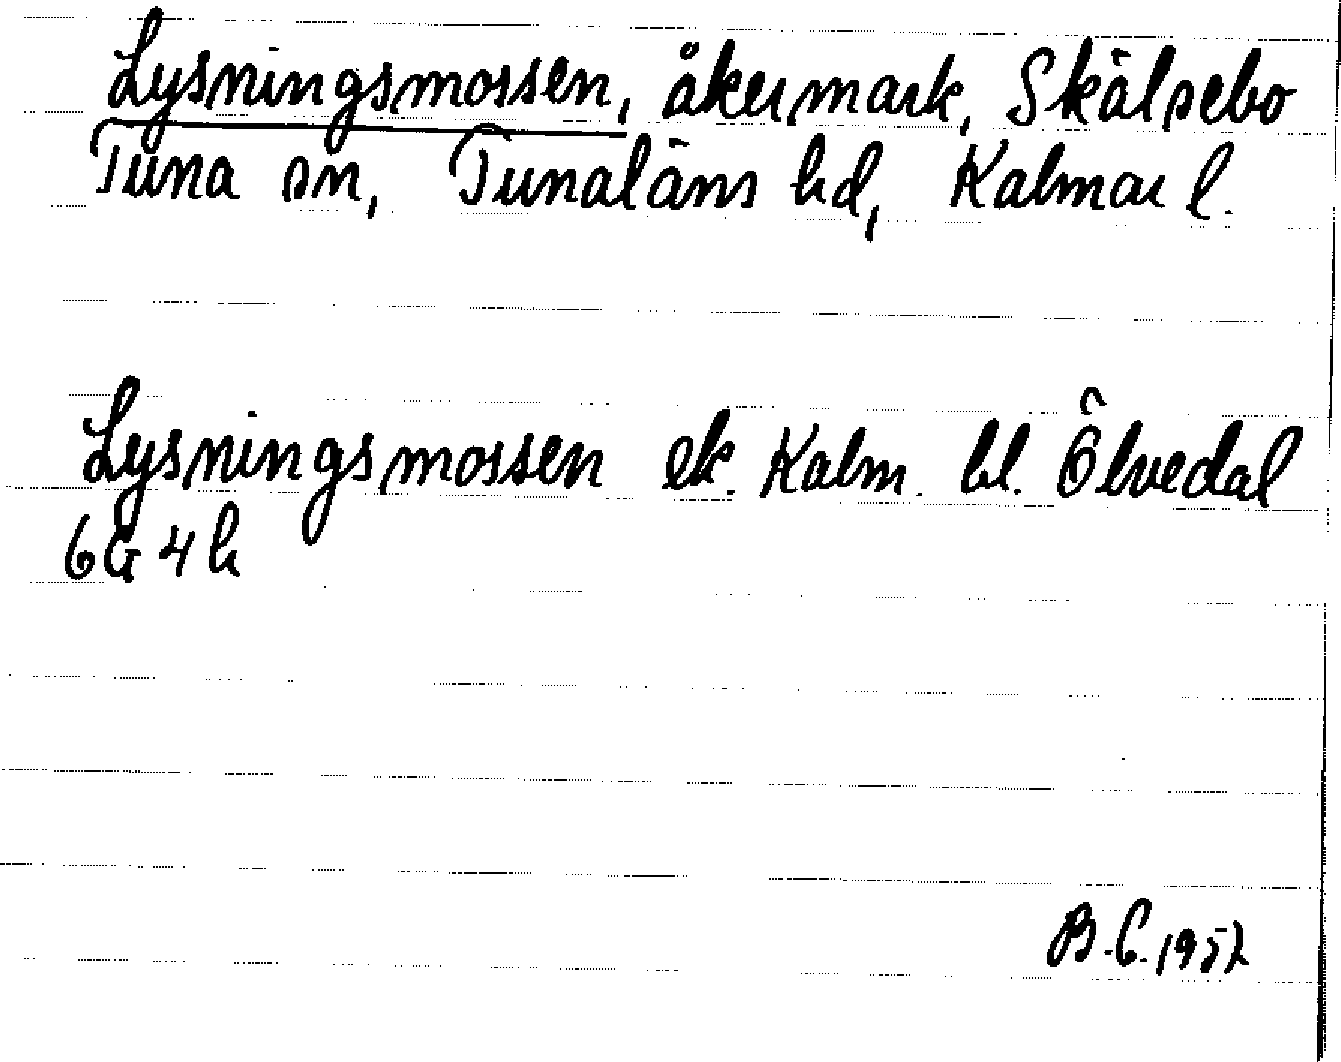 Lysningsmossen, åkermark, Skälsebo
Tuna sn, Tunaläns hd, Kalmar l.
Lysningsmossen ek. Kalm. bl. Ölvedal
6G 4h
B.C. 1957